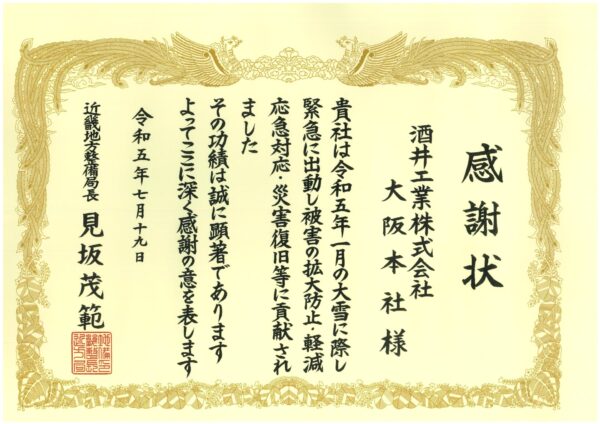 感謝状
酒井工業株式会社
大阪本社 様
貴社は令和五年一月の大雪に際し
緊急に出動し被害の拡大防止・軽減
応急対応・災害復旧等に貢献され
ました
その功績は誠に顕著であります
よってここに深く感謝の意を表します
令和五年七月十九日
近畿地方整備局長 見坂茂範